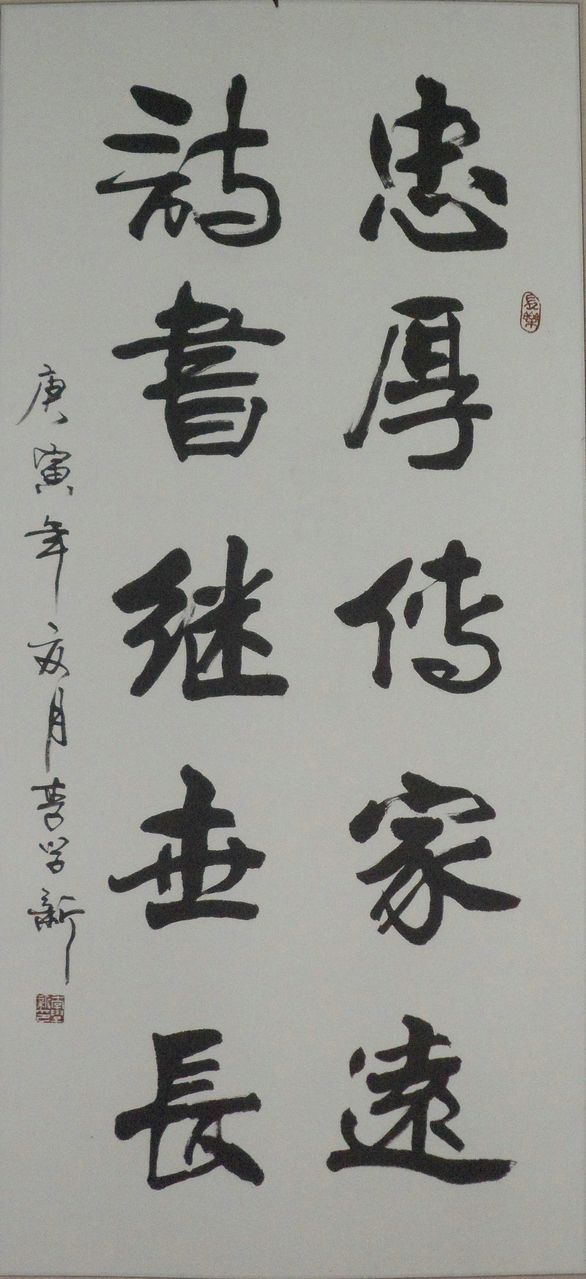 忠厚传家遠
詩書继世長
庚寅年亥月李学新
長樂